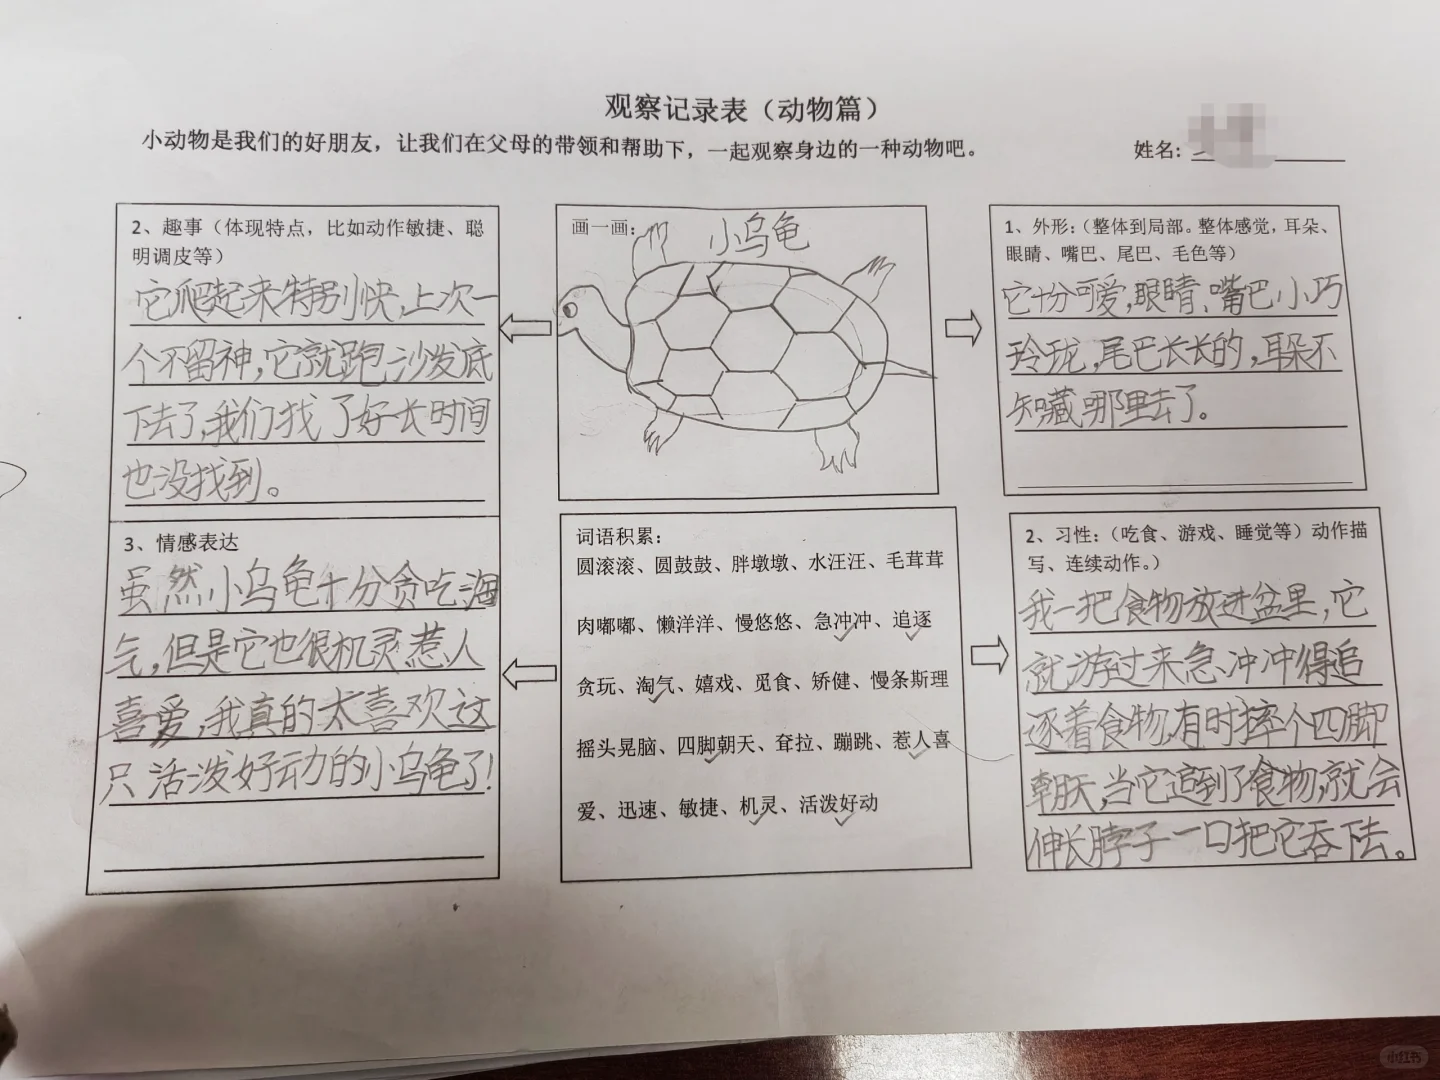 观察记录表（动物篇）
小动物是我们的好朋友，让我们在父母的带领和帮助下，一起观察身边的一种动物吧。
姓名:
2、趣事（体现特点，比如动作敏捷、聪
明调皮等）
它爬起来特别快，上次一
个不留神，它就跑沙发底
下去了，我们找了好长时间
也没找到。
画一画：
小乌龟
1、外形：（整体到局部。整体感觉，耳朵、
眼睛、嘴巴、尾巴、毛色等）
它十分可爱，眼睛、嘴巴小巧
玲珑，尾巴长长的，耳朵不
知藏哪里去了。
3、情感表达
虽然小乌龟十分贪吃淘
气，但是它也很机灵惹人
喜爱，我真的太喜欢这
只活泼好动的小乌龟了！
词语积累：
圆滚滚、圆鼓鼓、胖墩墩、水汪汪、毛茸茸
肉嘟嘟、懒洋洋、慢悠悠、急冲冲、追逐
贪玩、淘气、嬉戏、觅食、矫健、慢条斯理
摇头晃脑、四脚朝天、耷拉、蹦跳、惹人喜
爱、迅速、敏捷、机灵、活泼好动
2、习性：（吃食、游戏、睡觉等）动作描
写、连续动作。）
我一把食物放进盆里，它
就游过来急冲冲得追
逐着食物，有时摔个四脚
朝天，当它追到了食物，就会
伸长脖子一口把它吞下去。
小红书